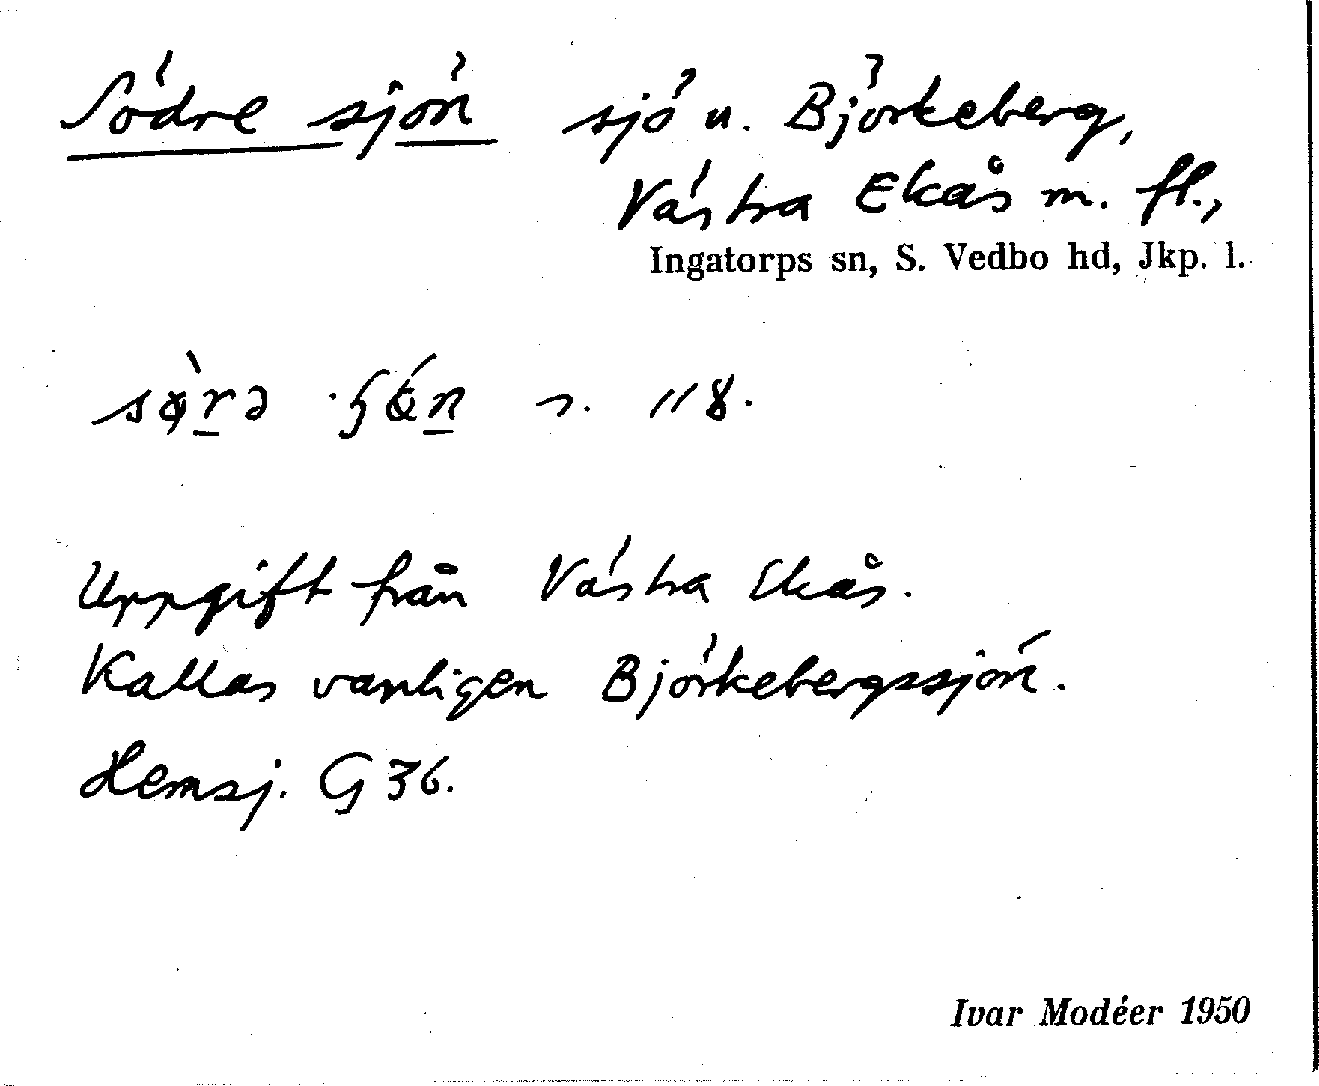 Södre sjön sjö u. Björkeberg,
Västra Ekås m. fl.,
Ingatorps sn, S. Vedbo hd, Jkp. l.
118.
Uppgift från Västra Ekås.
Kallas vanligen Björkebergssjön.
Hemsj. G 36.
Ivar Modéer 1950